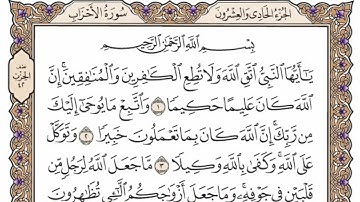 الجزء الحادي والعشرون
سورة الأحزاب
بِسْمِ اللَّهِ الرَّحْمَٰنِ الرَّحِيمِ
يَا أَيُّهَا النَّبِيُّ اتَّقِ اللَّهَ وَلَا تُطِعِ الْكَافِرِينَ وَالْمُنَافِقِينَ إِنَّ
اللَّهَ كَانَ عَلِيمًا حَكِيمًا ١ وَاتَّبِعْ مَا يُوحَىٰ إِلَيْكَ
مِن رَّبِّكَ إِنَّ اللَّهَ كَانَ بِمَا تَعْمَلُونَ خَبِيرًا ٢ وَتَوَكَّلْ
عَلَى اللَّهِ وَكَفَىٰ بِاللَّهِ وَكِيلًا ٣ مَّا جَعَلَ اللَّهُ لِرَجُلٍ مِّن
قَلْبَيْنِ فِي جَوْفِهِ وَمَا جَعَلَ أَزْوَاجَكُمُ اللَّائِي تُظَاهِرُونَ
الحزب
٤٢